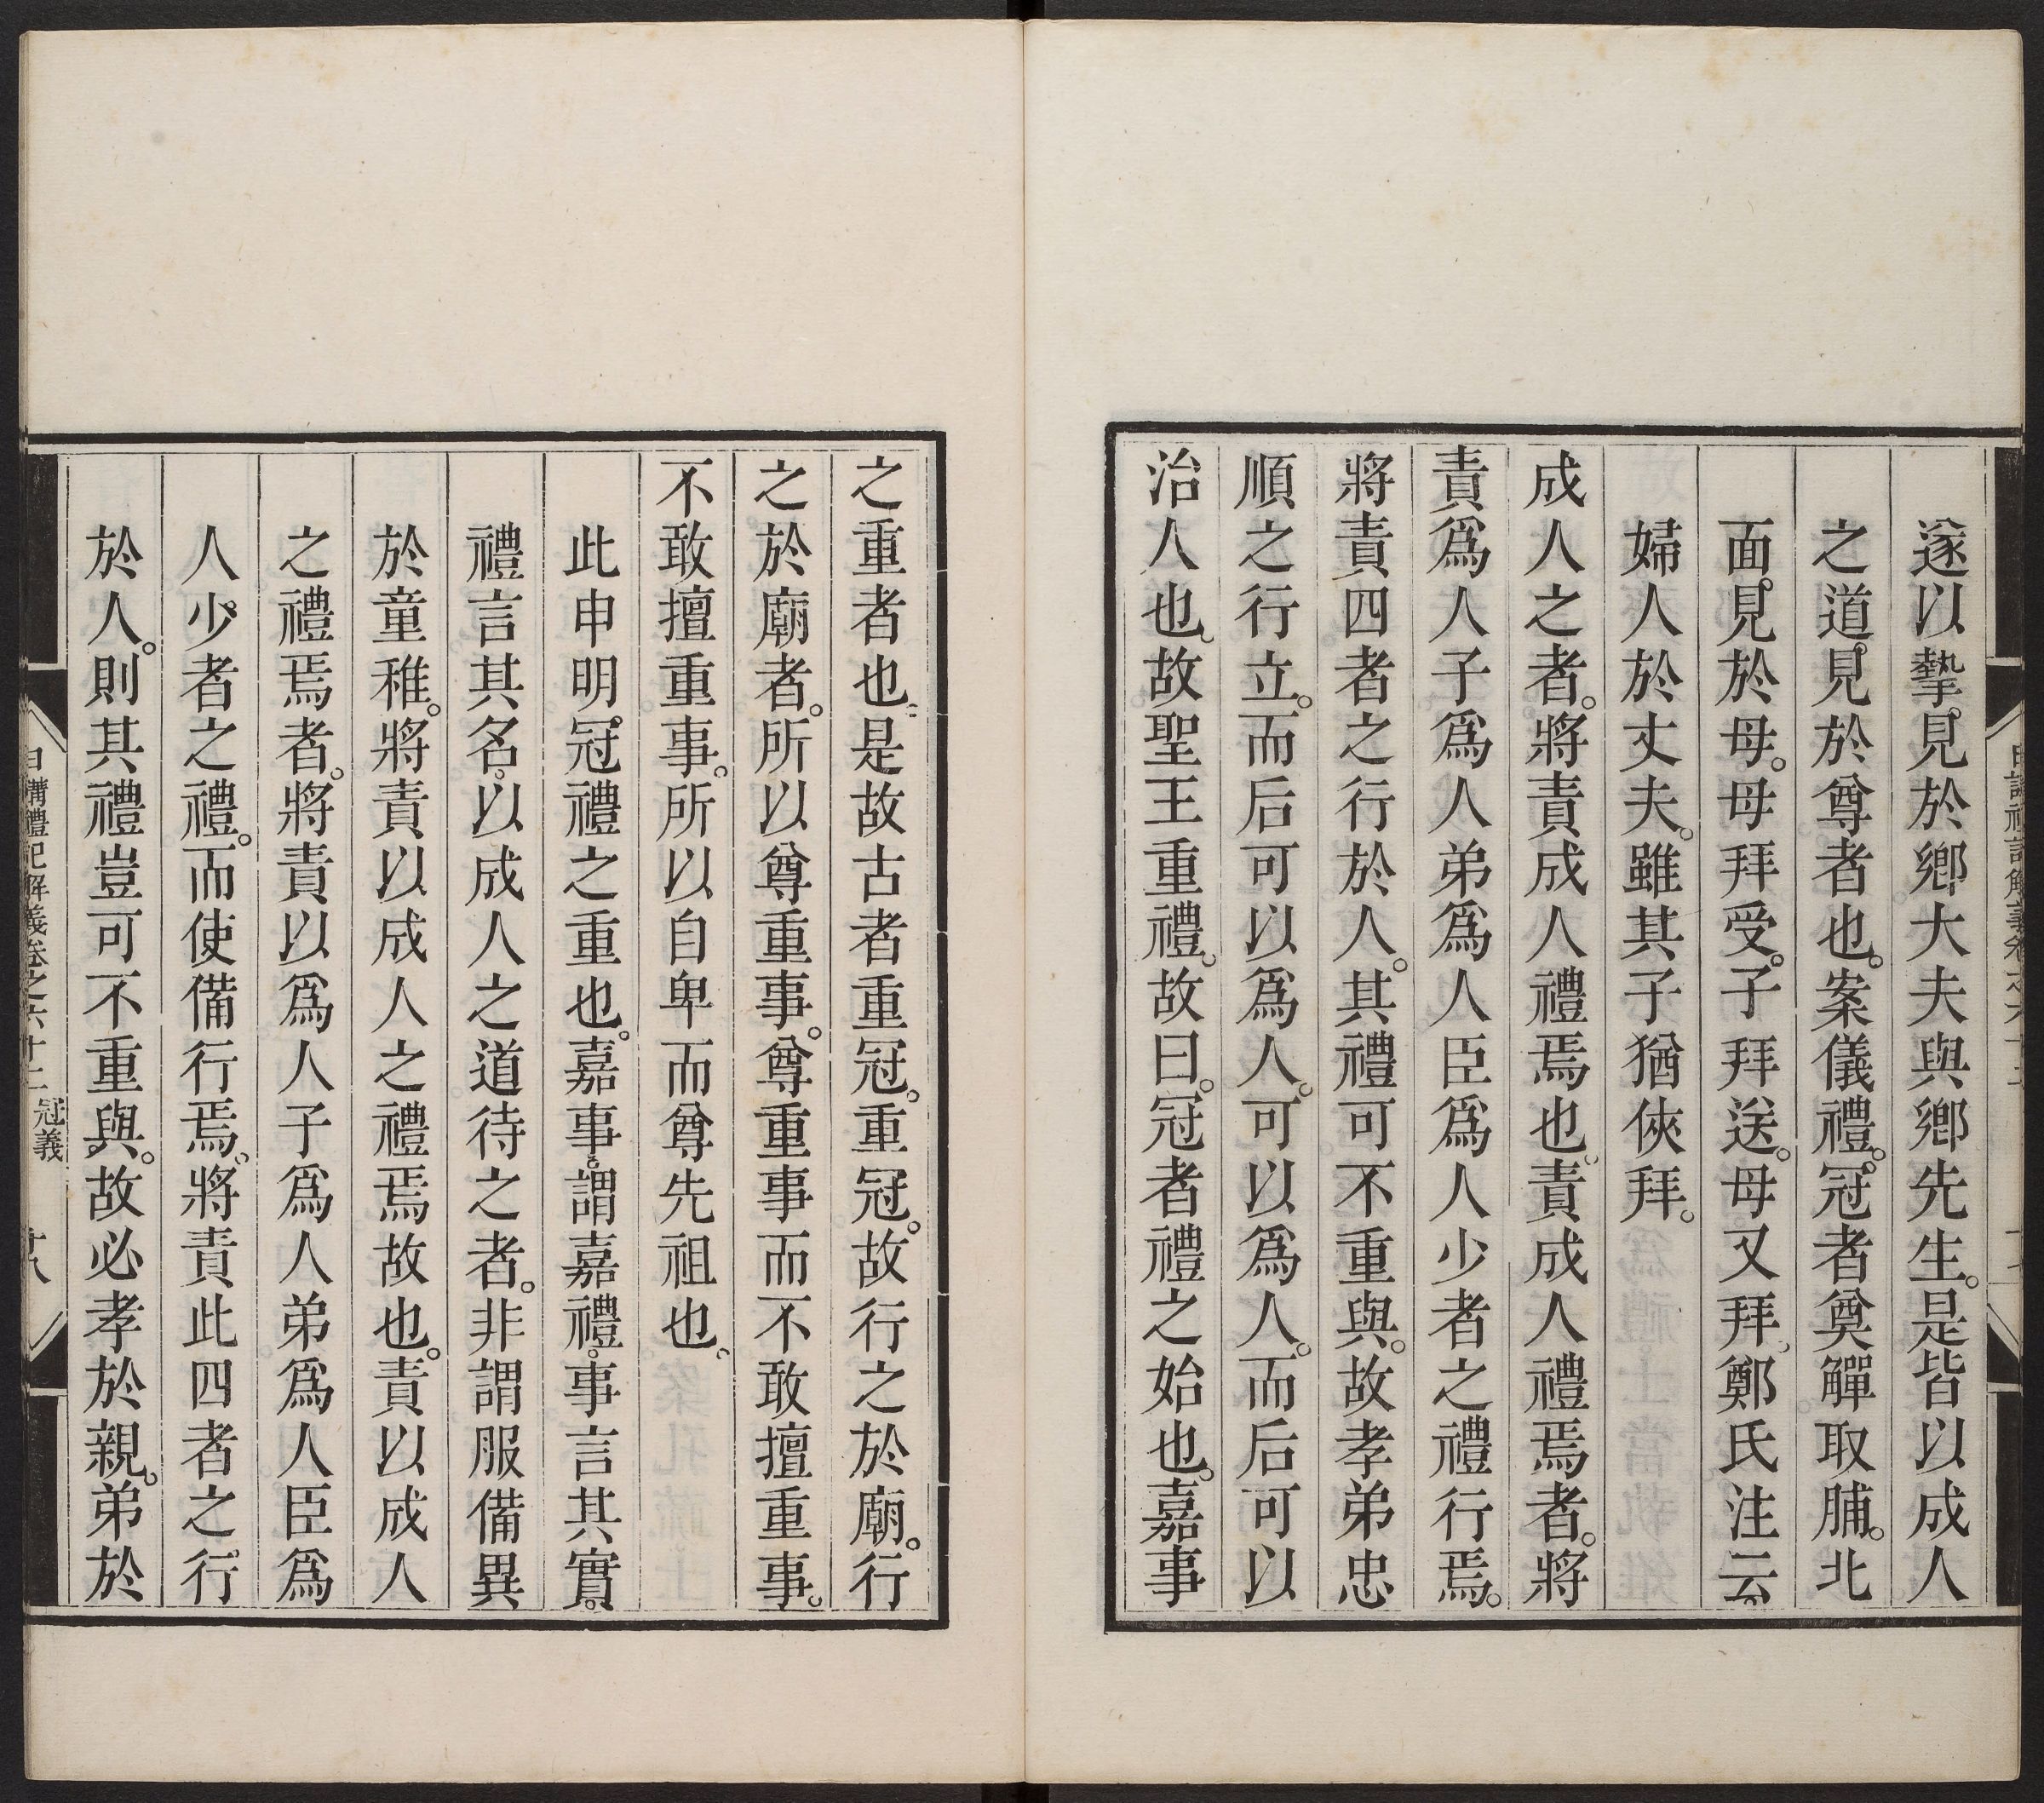 遂以摯。見於鄉大夫與鄉先生。是皆以成人
之道。見於尊者也。案儀禮。冠者奠觶取脯。北
面。見於母。母拜受。子拜送。母又拜。鄭氏注云。
婦人於丈夫。雖其子猶俠拜。
成人之者。將責成人禮焉也。責成人禮焉者。將
責爲人子爲人弟爲人臣爲人少者之禮行焉。
將責四者之行於人。其禮可不重與。故孝弟忠
順之行立。而后可以爲人。可以爲人。而后可以
治人也。故聖王重禮。故曰。冠者禮之始也。嘉事
之重者也。是故古者重冠。重冠。故行之於廟。行
之於廟者。所以尊重事。尊重事而不敢擅重事。
不敢擅重事。所以自卑而尊先祖也。
此申明冠禮之重也。嘉事。謂嘉禮。事言其實。
禮言其名。以成人之道待之者。非謂服備異
於童稚。將責以成人之禮焉故也。責以成人
之禮焉者。將責以爲人子爲人弟爲人臣爲
人少者之禮。而使備行焉。將責此四者之行
於人。則其禮豈可不重與。故必孝於親。弟於
日講禮記解義卷之六十二 冠義 十八